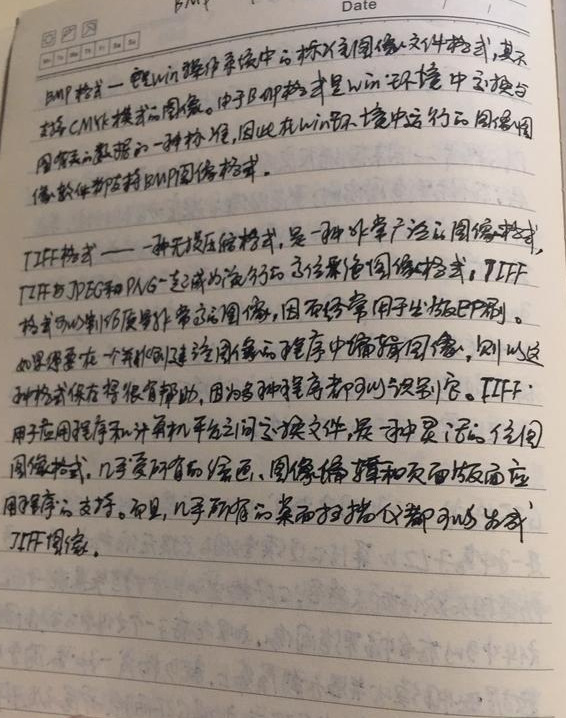 BMP
Date
Mo Tu We Th Fr Sa Su
BMP格式——它是Win操作系统中的标准图像文件格式,其不
支持CMYK模式的图像。由于BMP格式是Win环境中交换与
图有关的数据的一种标准,因此在Win环境中运行的图像图
像软件都支持BMP图像格式。
TIFF格式——一种无损压缩格式,是一种非常广泛的图像格式,
TIFF与JPEG和PNG一起成为流行的高位彩色图像格式。TIFF
格式可以制作质量非常高的图像,因而经常用于出版印刷。
如果想要在一个并非创建该图像的程序中编辑图像,则以这
种格式保存将很有帮助,因为多种程序都可以识别它。TIFF
用于应用程序和计算机平台之间交换文件,是一种灵活的位图
图像格式,几乎受所有的绘画、图像编辑和页面版面应
用程序的支持。而且,几乎所有的桌面扫描仪都可以生成
TIFF图像。